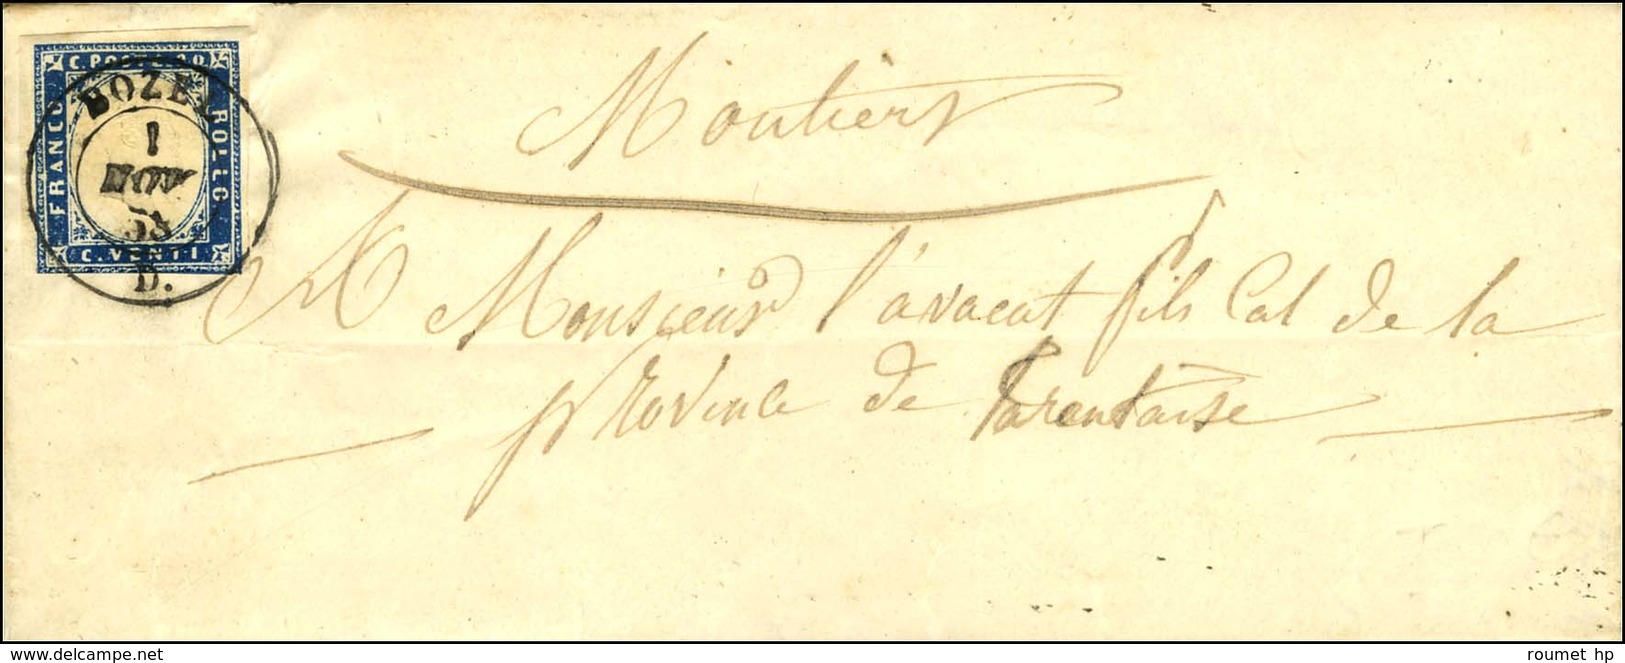 C. POSTE 20
FRANCO
BOLLO
C. VENTI
BOZEL
1
NOV
58
D.
Moutiers
A Monsieur l'avacat fils Cal de la
province de Tarentaise
www.delcampe.net
roumet hp